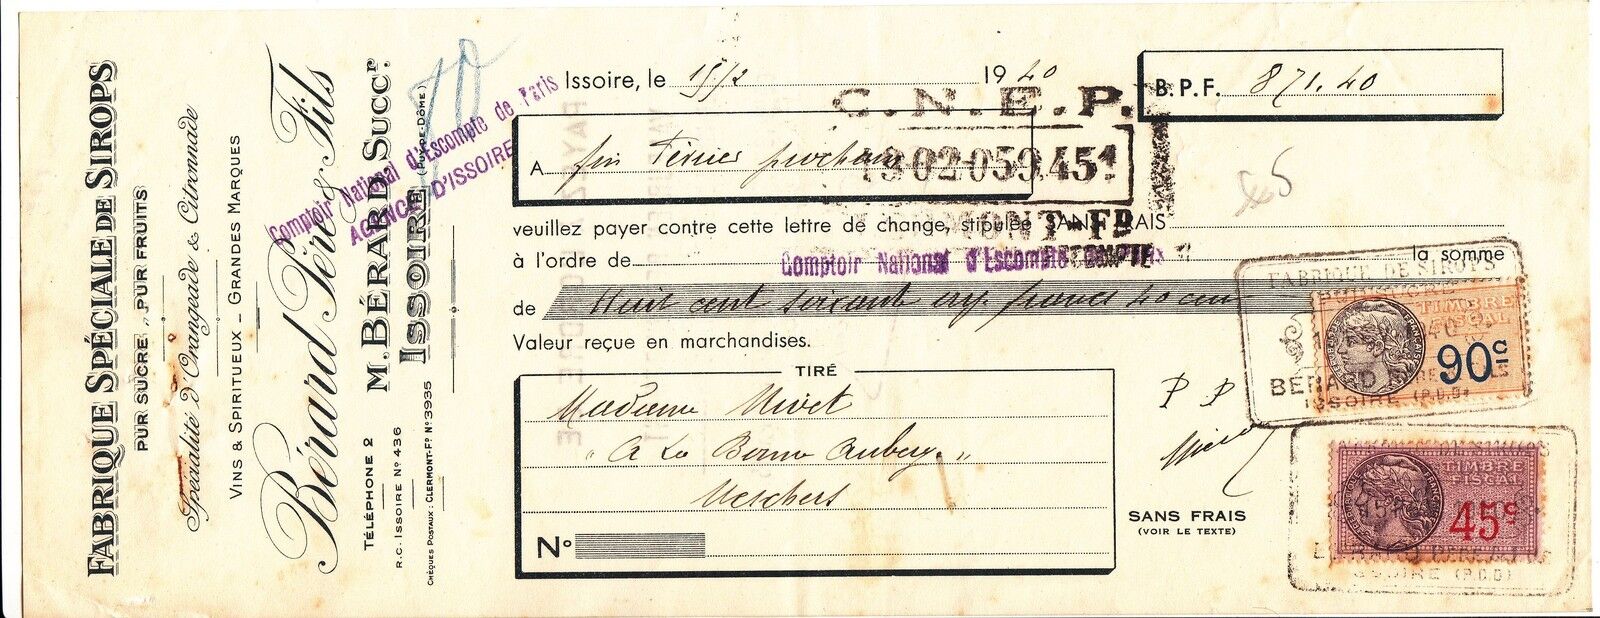 FABRIQUE SPÉCIALE DE SIROPS
PUR SUCRE „ PUR FRUITS
Spécialité d'Orangeade & Citronnade
VINS & SPIRITUEUX _ GRANDES MARQUES
Bérard Père & Fils
M. BÉRARD SUCCr.
ISSOIRE (PUY-DE-DÔME)
TÉLÉPHONE 2
R.C. ISSOIRE No 436
CHÈQUES POSTAUX : CLERMONT-Fd No 3935
Comptoir National d'Escompte de Paris
AGENCE D'ISSOIRE
Issoire, le 15/2 1940
B.P.F. 871.40
C.N.E.P.
A fin Février prochain
1302059451
veuillez payer contre cette lettre de change, stipulée SANS FRAIS
à l'ordre de Comptoir National d'Escompte la somme
de Huit cent soixante onze francs 40 cm
Valeur reçue en marchandises.
TIRÉ
Madame Nivet
"A La Bonne Auberge"
Meschers
No
P P
SANS FRAIS
(VOIR LE TEXTE)
FABRIQUE DE SIROPS
TIMBRE
FISCAL
90c
BERARD PERE & FILS
ISSOIRE (P.D.D)
TIMBRE
FISCAL
45c
ISSOIRE (P.D.D)